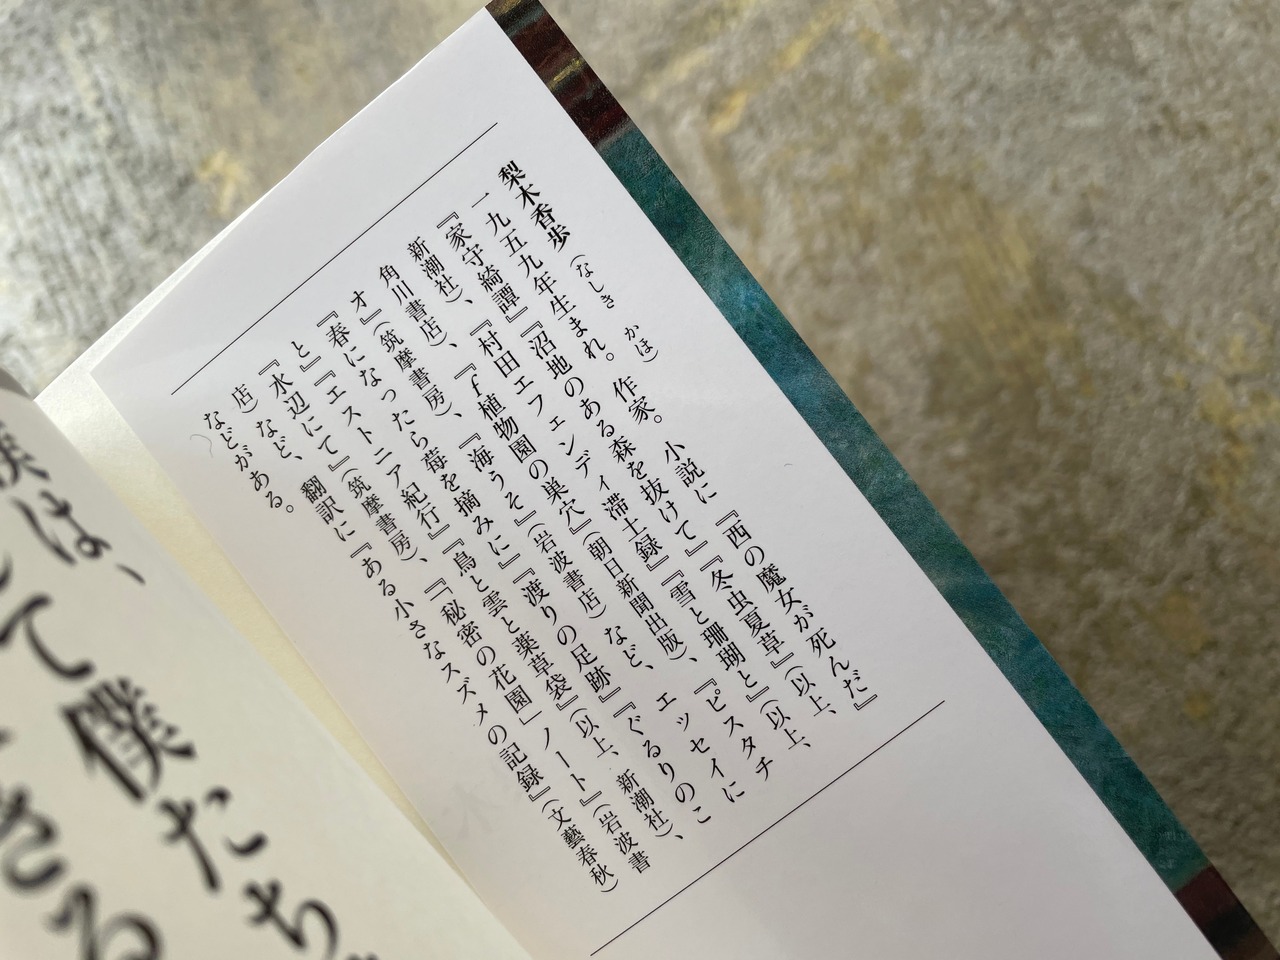 梨木香歩（なしき　かほ）　作家。小説に『西の魔女が死んだ』
一九五九年生まれ。
『家守綺譚』『沼地のある森を抜けて』『冬虫夏草』（以上、
新潮社）、『村田エフェンディ滞土録』『雪と珊瑚と』（以上、
角川書店）、『f植物園の巣穴』（朝日新聞出版）、『ピスタチ
オ』（筑摩書房）、『海うそ』（岩波書店）など、エッセイに
『春になったら莓を摘みに』『渡りの足跡』『ぐるりのこ
と』『エストニア紀行』『鳥と雲と薬草袋』（以上、新潮社）、
『水辺にて』（筑摩書房）、『「秘密の花園」ノート』（岩波書
店）など、翻訳に『ある小さなスズメの記録』（文藝春秋）
などがある。
僕は、
て僕たち
きる